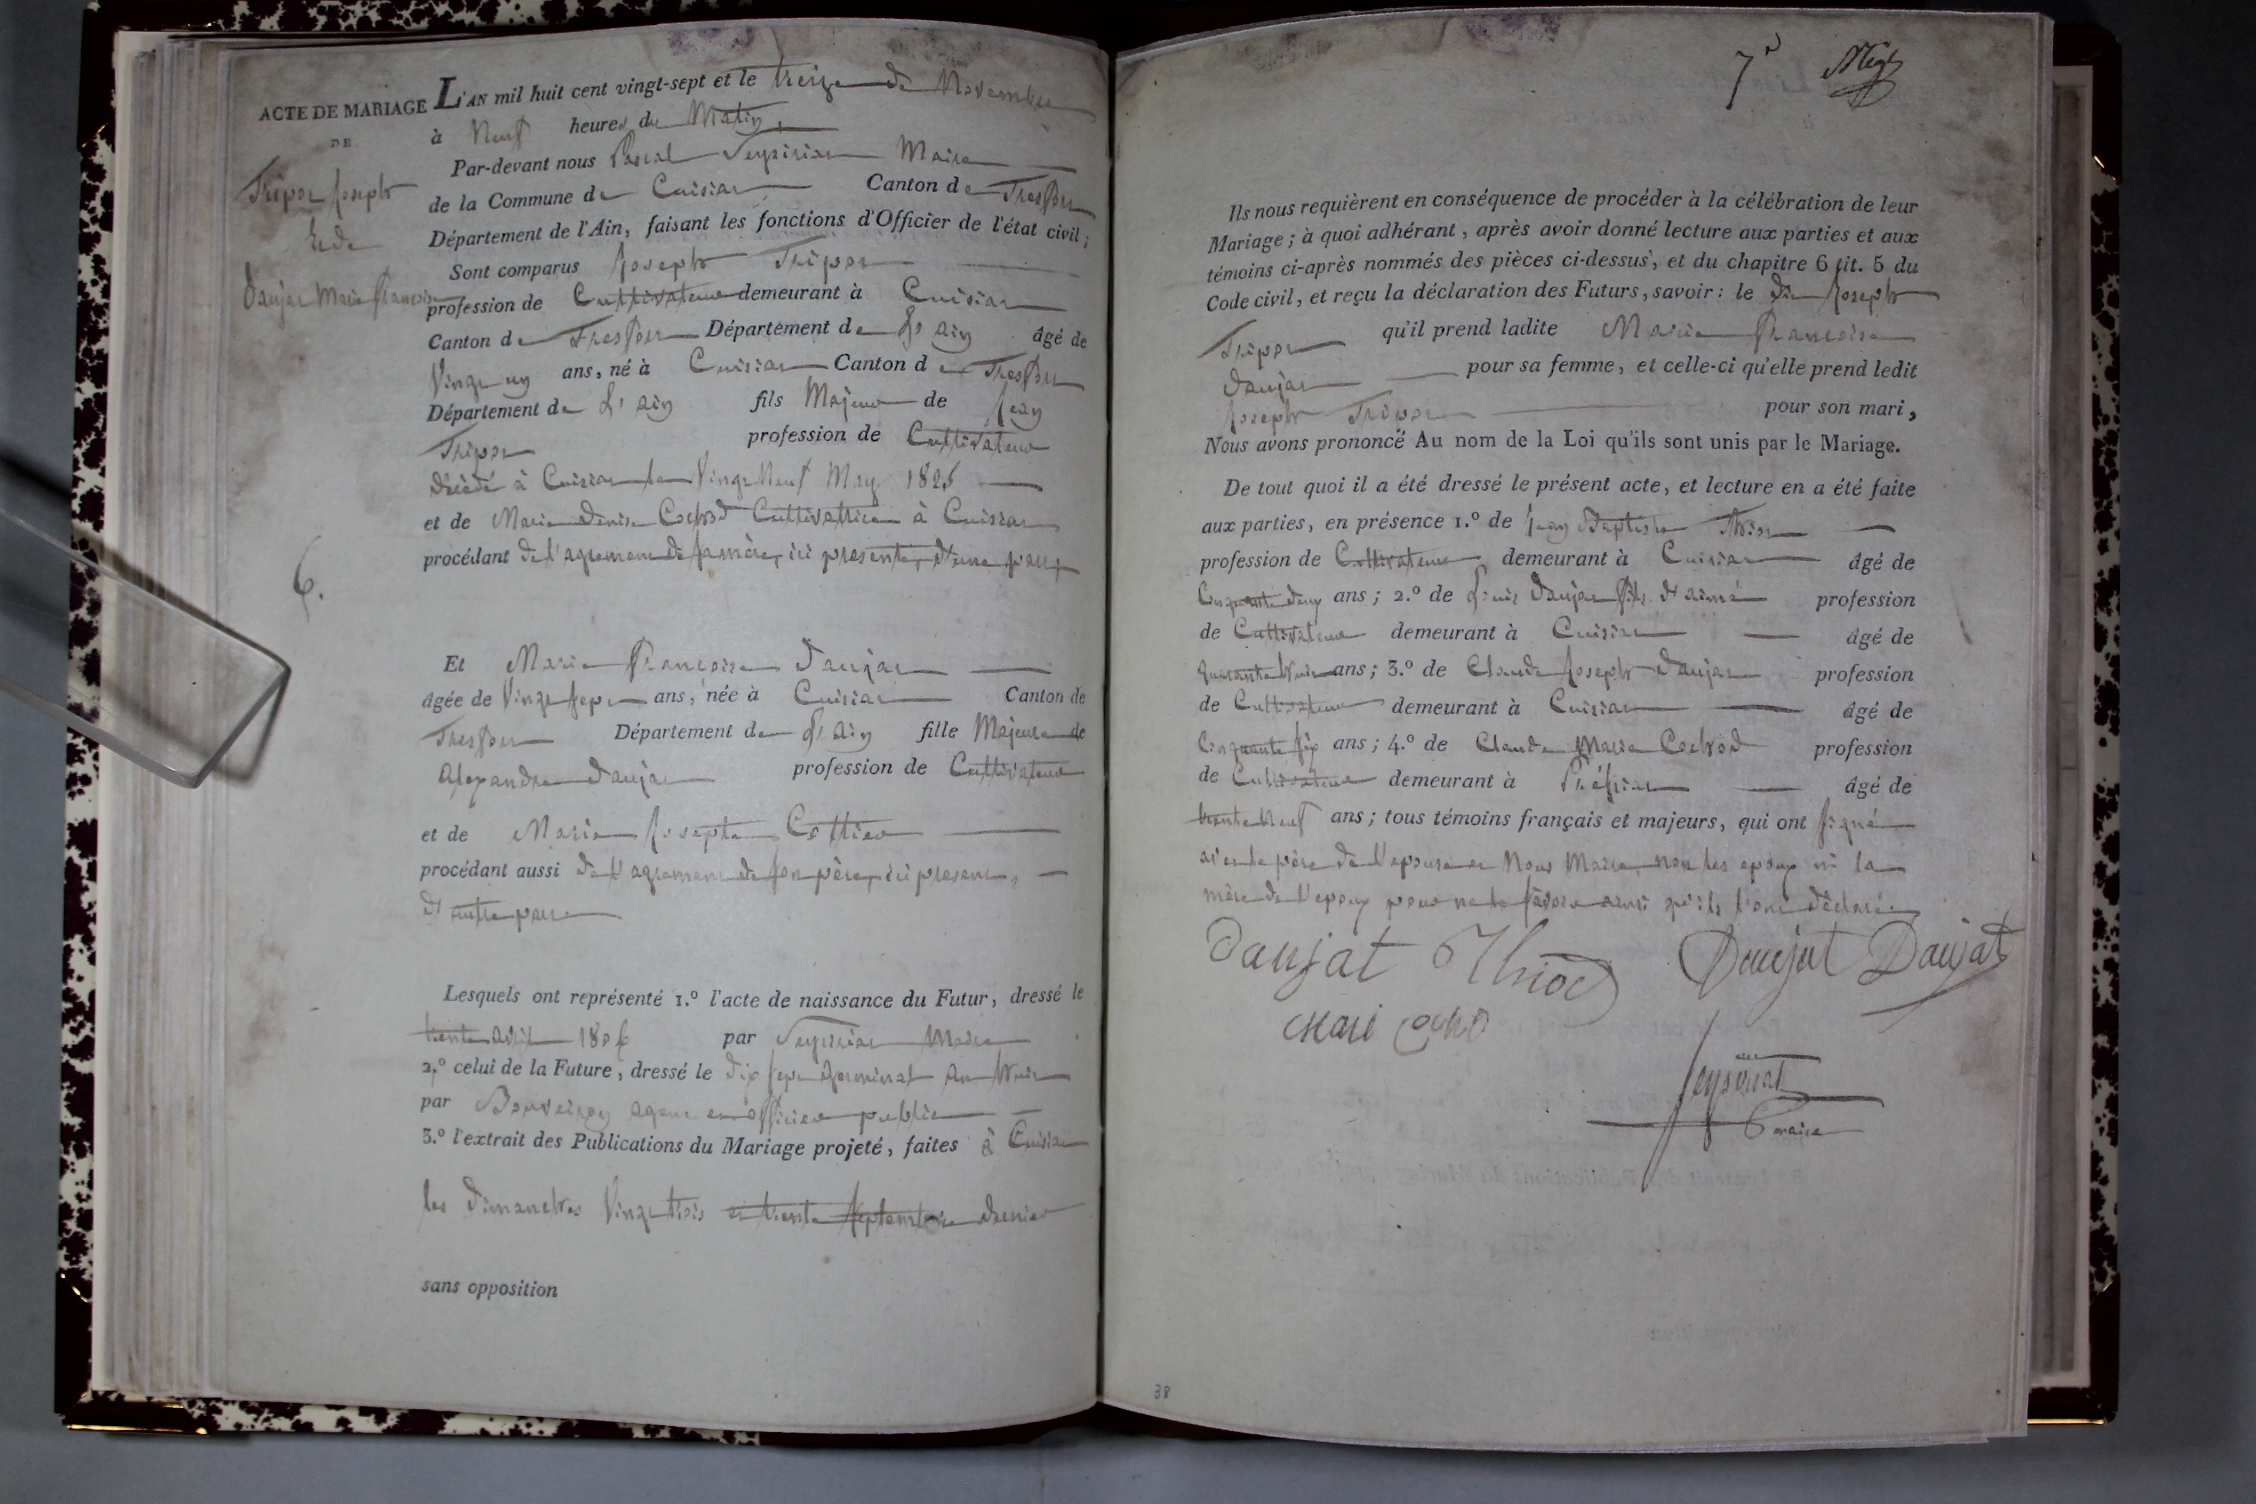 ACTE DE MARIAGE
DE
Tripoz Joseph
Et de
Daujat Marie françoise
6.
L'AN mil huit cent vingt-sept et le treize de Novembre
à Neuf heures du Matin,
Par-devant nous Pascal Seyssiat Maire
de la Commune de Cuisiat Canton de Treffort
Département de l'Ain, faisant les fonctions d'Officier de l'état civil;
Sont comparus Joseph Tripoz
profession de Cultivateur demeurant à Cuisiat
Canton de Treffort Département de L'ain âgé de
Vingt un ans, né à Cuisiat Canton de Treffort
Département de L'ain fils Majeur de Jean
Tripoz profession de Cultivateur
décédé à Cuisiat le Vingt Neuf May
et de Marie denise Cochod Cultivatrice à Cuisiat
procédant de l'agrement de sa mère, ici presente, d'une part
Et Marie françoise Daujat
âgée de Vingt sept ans, née à Cuisiat Canton de
Treffort Département de L'ain fille Majeure de
Alexandre Daujat profession de Cultivateur
et de Marie Josephte Cottier
procédant aussi de l'agrement de son père, ici present,
d'autre part
Lesquels ont représenté 1.º l'acte de naissance du Futur, dressé le
trente avril par Seyssiat Maire
2.º celui de la Future, dressé le dix sept germinal an huit
par agent et officier public
3.º l'extrait des Publications du Mariage projeté, faites à Cuisiat
les dimanches Vingt trois et trente Septembre dernier
sans opposition
7e
Ils nous requièrent en conséquence de procéder à la célébration de leur
Mariage; à quoi adhérant, après avoir donné lecture aux parties et aux
témoins ci-après nommés des pièces ci-dessus, et du chapitre 6 tit. 5 du
Code civil, et reçu la déclaration des Futurs, savoir: le dit Joseph
Tripoz qu'il prend ladite Marie françoise
Daujat pour sa femme, et celle-ci qu'elle prend ledit
Joseph Tripoz pour son mari,
Nous avons prononcé Au nom de la Loi qu'ils sont unis par le Mariage.
De tout quoi il a été dressé le présent acte, et lecture en a été faite
aux parties, en présence 1.º de Jean Baptiste Thiod
profession de Cultivateur demeurant à Cuisiat âgé de
Cinquante deux ans; 2.º de Louis Daujat fils d'aimé profession
de Cultivateur demeurant à Cuisiat âgé de
quarante trois ans; 3.º de Claude Joseph Daujat profession
de Cultivateur demeurant à Cuisiat âgé de
Cinquante six ans; 4.º de Claude Marie Cochod profession
de Cultivateur demeurant à Préssiat âgé de
trente neuf ans; tous témoins français et majeurs, qui ont signé
avec le père de l'epouse et Nous Maire, non les epoux ni la
mère de l'epoux pour ne le savoir ainsi qu'ils l'ont déclaré
Daujat Thiod Daujat Daujat
Seyssiat
maire
38